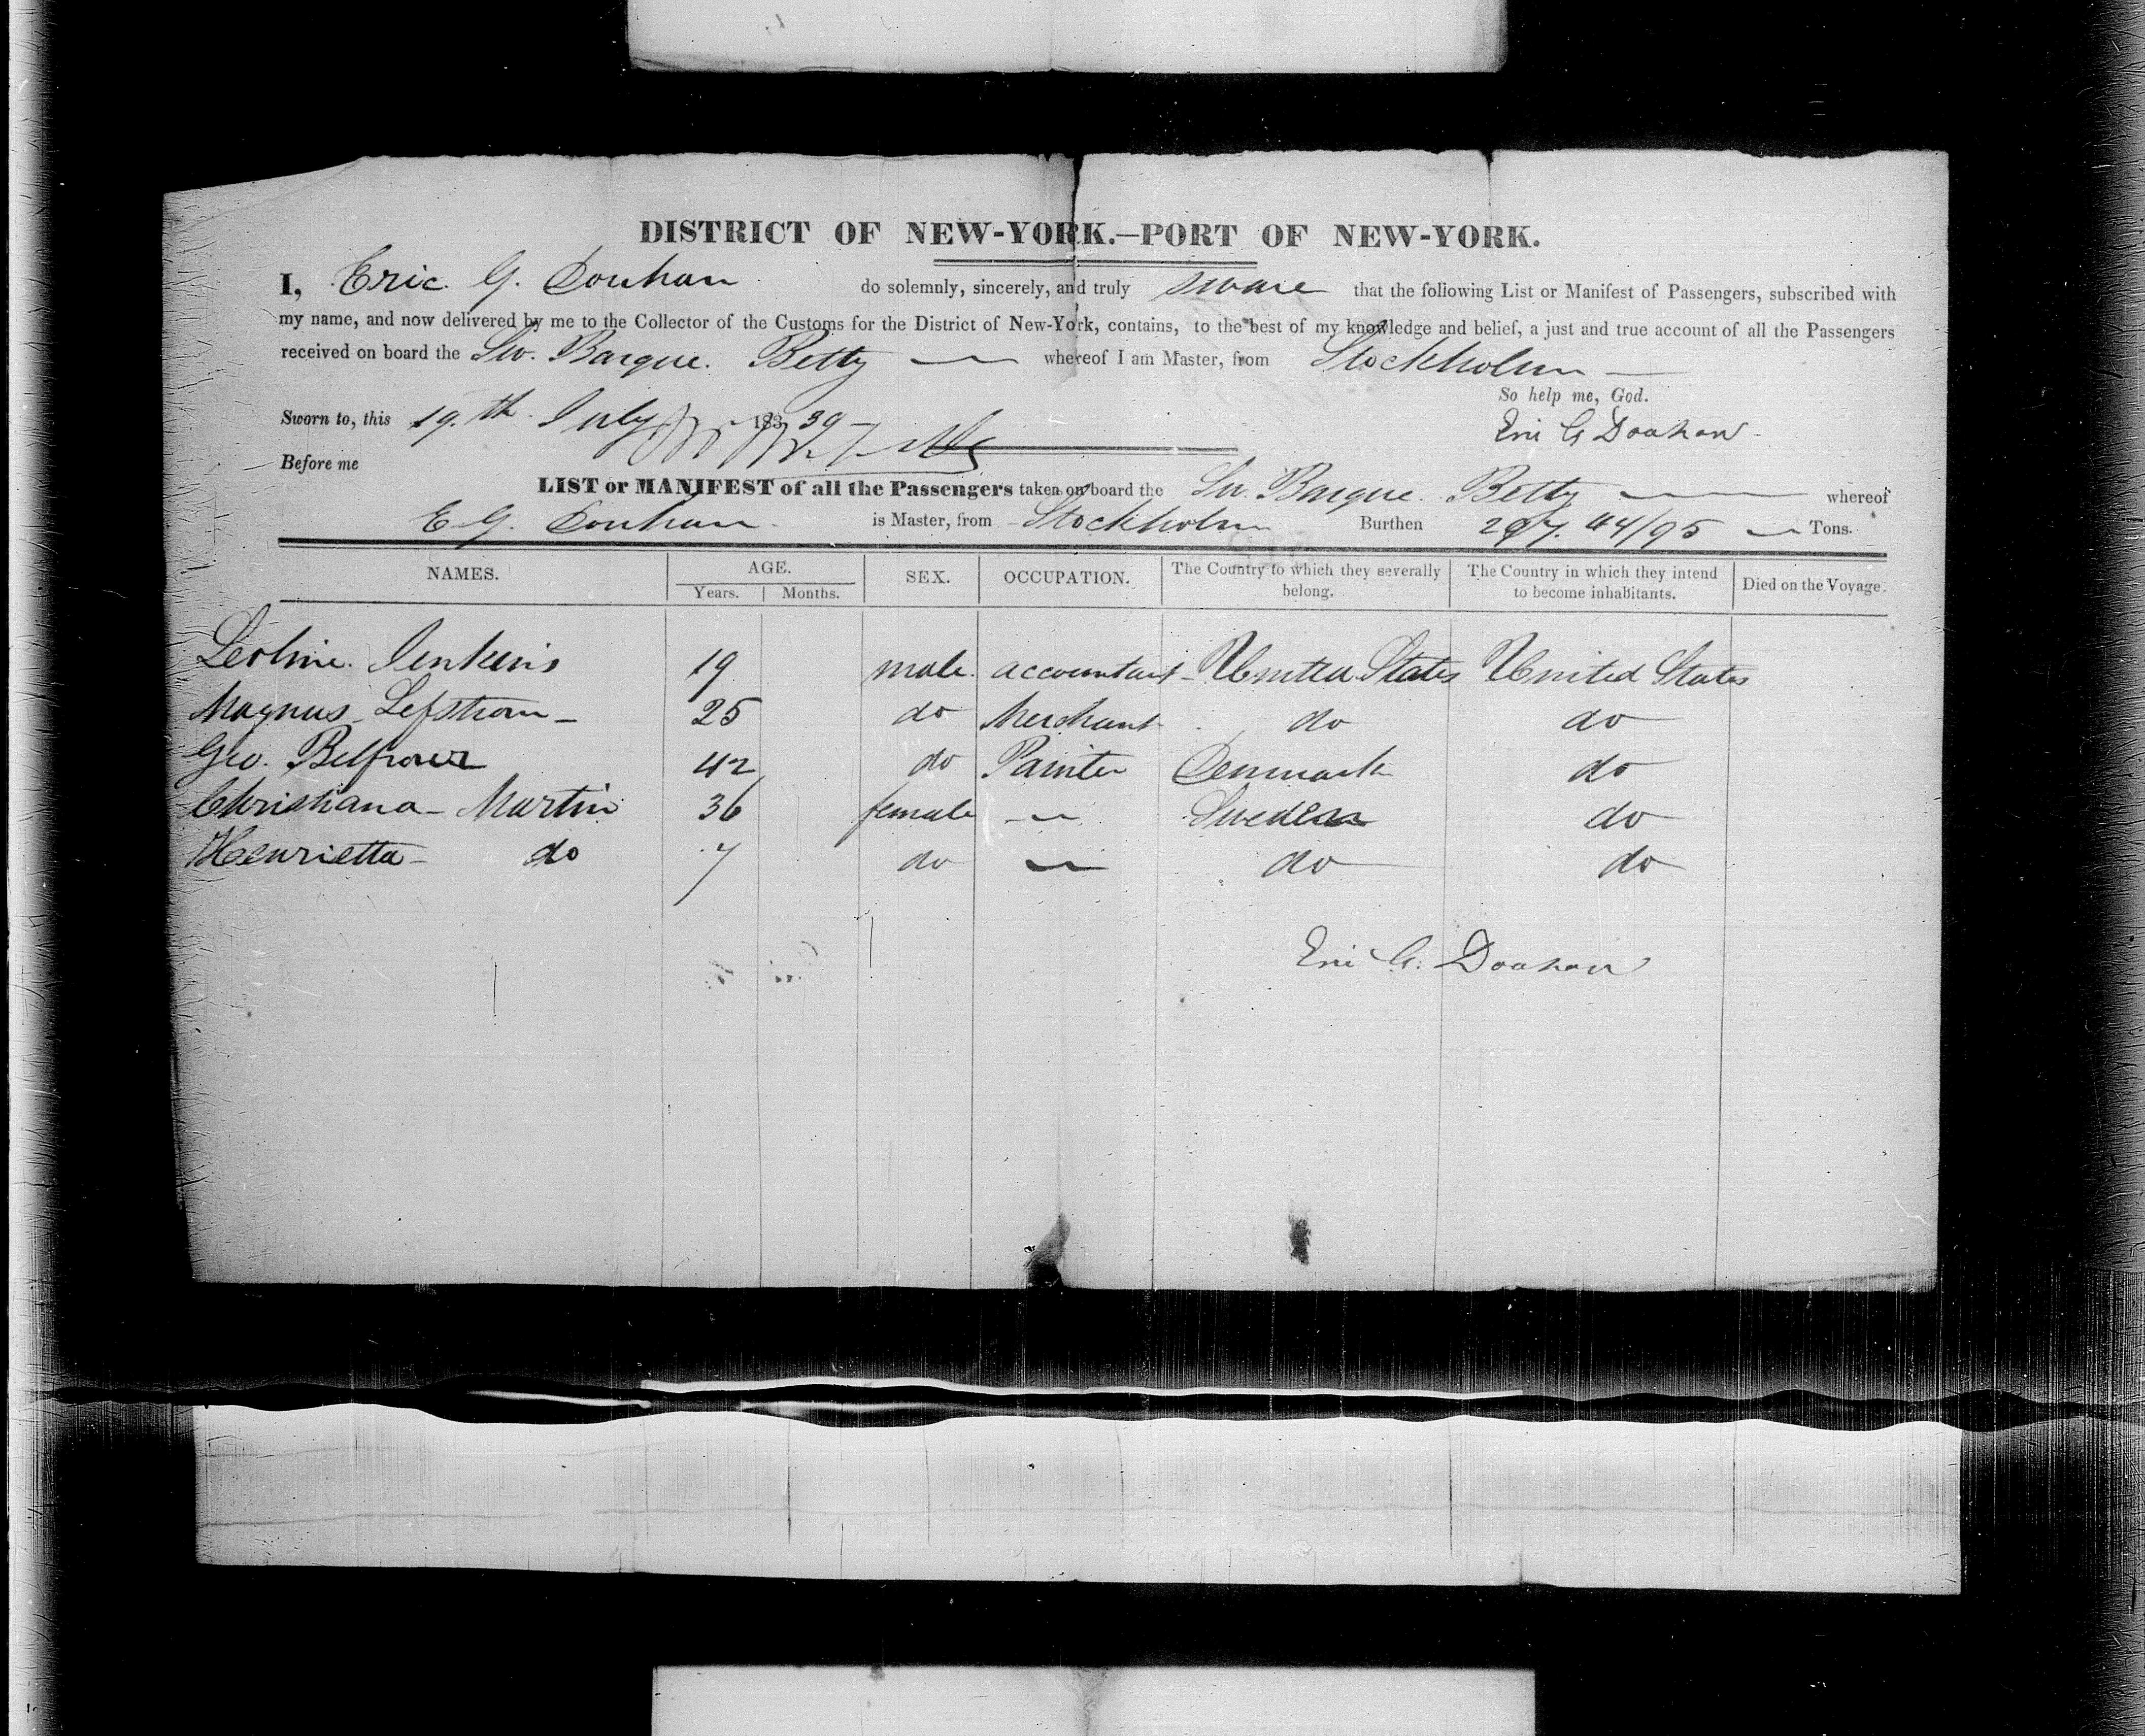 DISTRICT OF NEW-YORK.—PORT OF NEW-YORK.
I, Eric. G. Douhan do solemnly, sincerely, and truly sware that the following List or Manifest of Passengers, subscribed with
my name, and now delivered by me to the Collector of the Customs for the District of New-York, contains, to the best of my knowledge and belief, a just and true account of all the Passengers
received on board the Sw. Barque. Betty — whereof I am Master, from Stockholm —
So help me, God.
Sworn to, this 19.th July 183 39 —
Eric G Douhan
Before me
LIST or MANIFEST of all the Passengers taken on board the Sw. Barque. Betty — whereof
E. G. Douhan is Master, from Stockholm Burthen 44/95 — Tons.
NAMES. AGE. SEX. OCCUPATION. The Country to which they severally belong. The Country in which they intend to become inhabitants. Died on the Voyage.
Years. Months.
Leoline. Jenkins 19 male. accountant United States United States
Magnus 25 do Merchant do do
Geo. 42 do Painter Denmark do
Christiana - Martin 36 female — Sweden do
Henrietta - do 7 do — do do
Eric G. Douhan